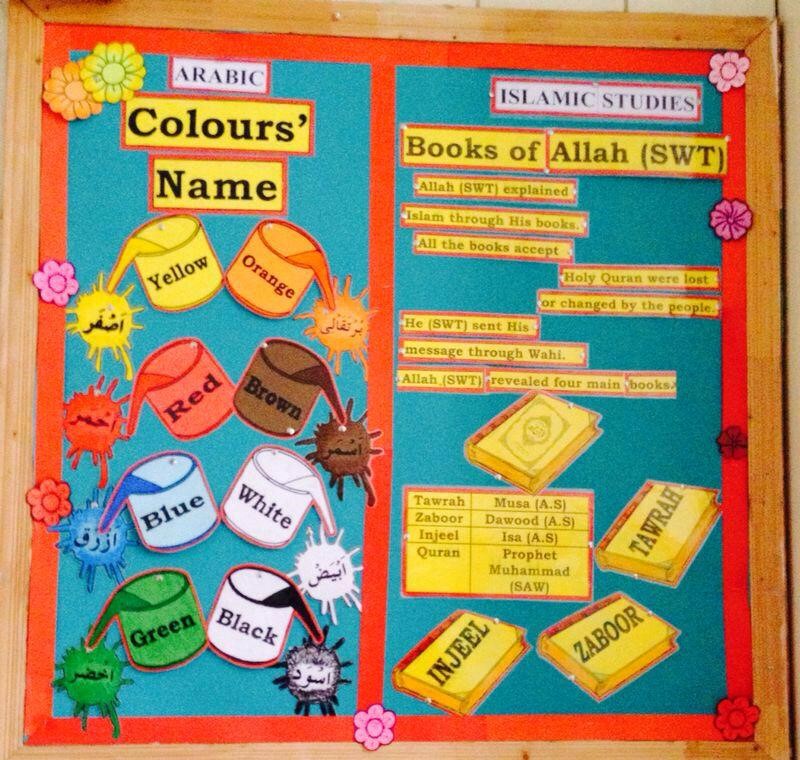 ARABIC
Colours'
Name
Yellow
Orange
اصفر
برتقالی
Red
Brown
احمر
اسمر
Blue
White
ازرق
ابیض
Green
Black
اخضر
اسود
ISLAMIC STUDIES
Books of Allah (SWT)
Allah (SWT) explained
Islam through His books.
All the books accept
Holy Quran were lost
or changed by the people.
He (SWT) sent His
message through Wahi.
Allah (SWT) revealed four main books.
Tawrah Musa (A.S)
Zaboor Dawood (A.S)
Injeel Isa (A.S)
Quran Prophet
Muhammad
(SAW)
TAWRAH
INJEEL
ZABOOR